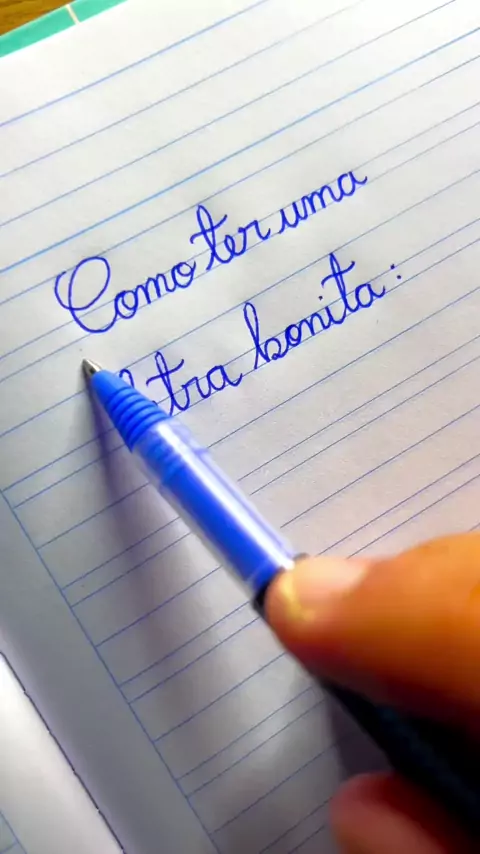 Como ter uma
bonita: